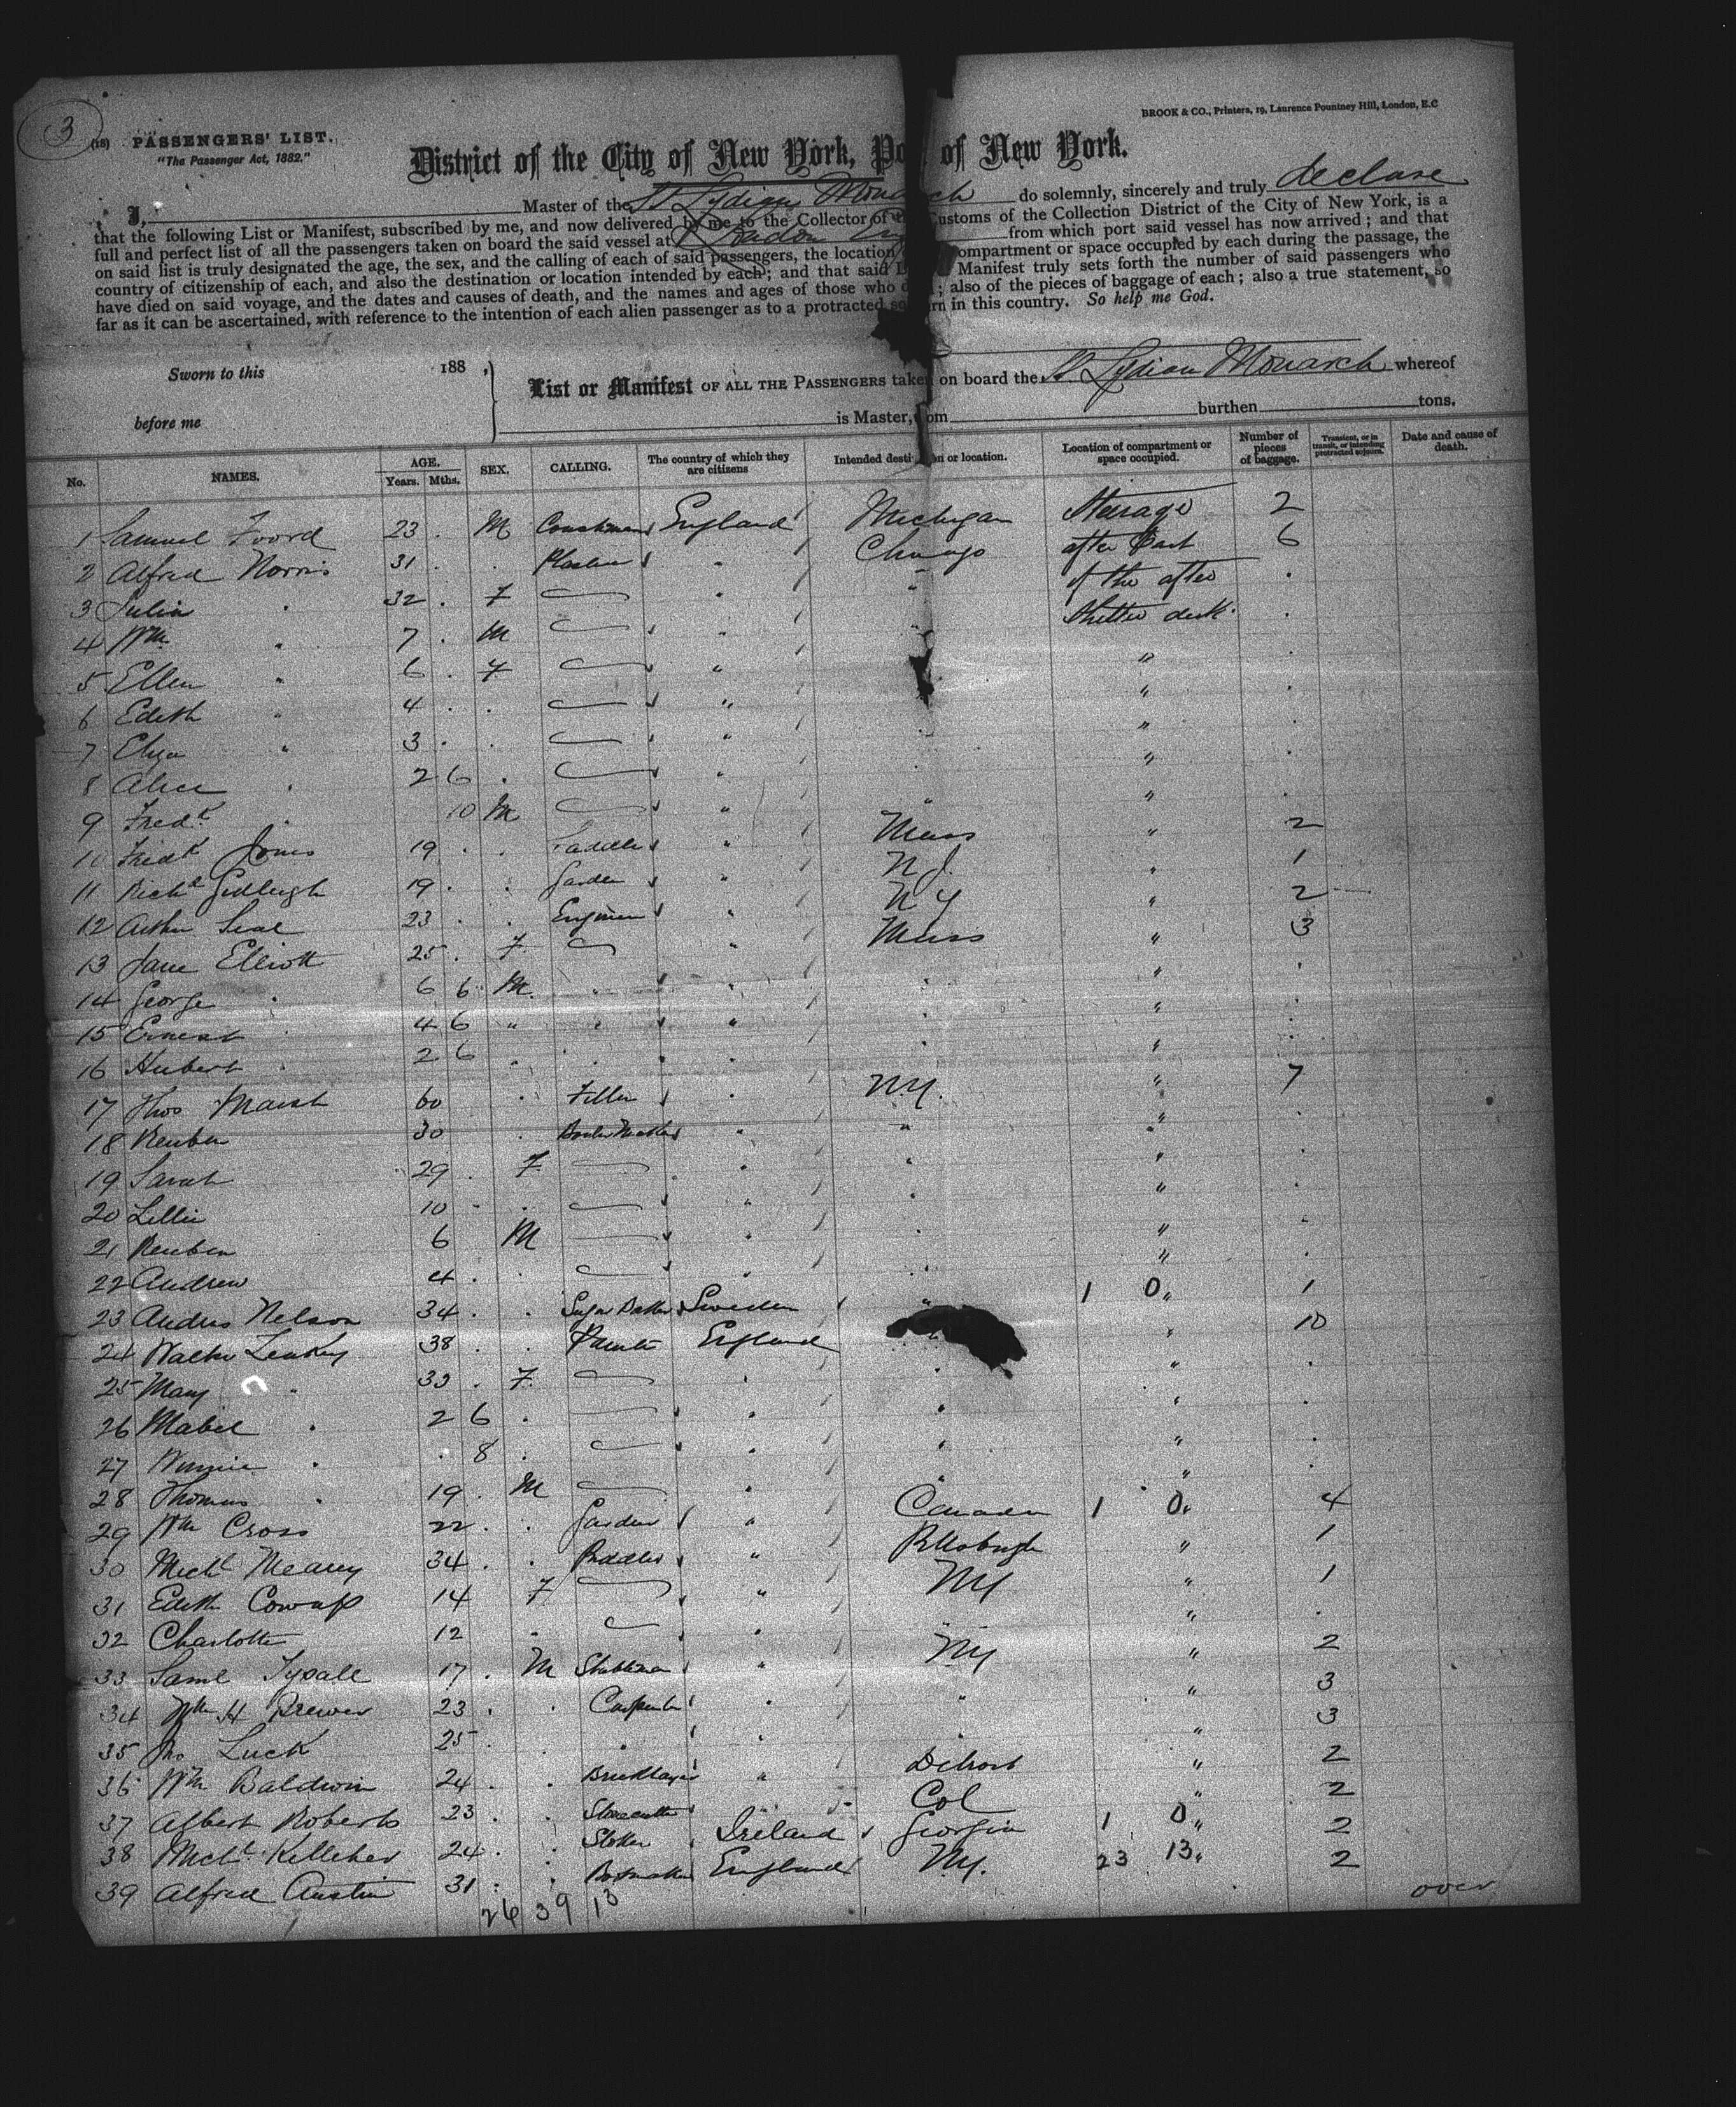 3
(18) PASSENGERS' LIST.
"The Passenger Act, 1882."
BROOK & CO., Printers, 19, Laurence Pountney Hill, London, E.C
District of the City of New York, Po of New York.
I, Master of the St Lydian Monarch do solemnly, sincerely and truly declare
that the following List or Manifest, subscribed by me, and now delivered by me to the Collector of the Customs of the Collection District of the City of New York, is a
full and perfect list of all the passengers taken on board the said vessel at London Eng from which port said vessel has now arrived; and that
on said list is truly designated the age, the sex, and the calling of each of said passengers, the location ompartment or space occupied by each during the passage, the
country of citizenship of each, and also the destination or location intended by each; and that said L Manifest truly sets forth the number of said passengers who
have died on said voyage, and the dates and causes of death, and the names and ages of those who d ; also of the pieces of baggage of each; also a true statement, so
far as it can be ascertained, with reference to the intention of each alien passenger as to a protracted so rn in this country. So help me God.
Sworn to this 188 ,
before me
List or Manifest OF ALL THE PASSENGERS taken on board the St. Lydian Monarch whereof
is Master, om burthen tons.
No. NAMES. AGE. Years. Mths. SEX. CALLING. The country of which they are citizens Intended desti n or location. Location of compartment or space occupied. Number of pieces of baggage. Transient, or in transit, or intending protracted sojourn. Date and cause of death.
1 Samuel Foord 23 . M England Michigan Stearage 2
2 Alfred Norris 31 . . " Chicago after Part 6
3 Julia " 32 . F " " of the after .
4 Wm. " 7 . M " " Shelter deck .
5 Ellen " 6 . F " " .
6 Edith " 4 . . " " .
7 Eliza " 3 . . " " .
8 Alice " 2 6 . " " .
9 Fredk " 10 M " " " .
10 Fredk Jones 19 . . " Mass " 2
11 Richd 19 . . Garden " N J. " 1
12 Arthur Seal 23 . . Engineer " N Y " 2
13 Jane Elliott 25 . F " Mass " 3
14 George " 6 6 M . " . " .
15 Ernest " 4 6 " . " . " .
16 Hubert " 2 6 . . . . " .
17 Thos Marsh 60 . . N.Y. " 7
18 Reuben 30 . Boiler Maker " " " .
19 Sarah 29 . F " " " .
20 Lillie 10 . . " . " .
21 Reuben 6 M " . " .
22 Andrew 4 . . " . " .
23 Andrs Nelson 34 . . Sugar Baker Sweden " 1 0 " 1
24 38 . . Painter England " 10
25 Mary " 33 . F " . " .
26 Mabel " 2 6 . " " " .
27 " . 8 . " " " .
28 Thomas " 19 . M " " " .
29 Wm Cross 22 . . " Canada 1 0 " 4
30 Michl 34 . . " Pittsburgh " 1
31 Edith 14 F " NY " 1
32 Charlotte 12 . " " " .
33 Saml 17 . M " NY " 2
34 Wm H Brewer 23 . . Carpenter " " " 3
35 Jno Luck 25 . . " " . " 3
36 Wm Baldwin 24 . . Bricklayer " Detroit " 2
37 Albert Roberts 23 . . Stonecutter " Col " 2
38 Michl. Kelleher 24 . . Stoker Ireland Georgia 1 0 " 2
39 Alfred Austin 31 . . England NY. 23 13 " 2
26 39 13
over